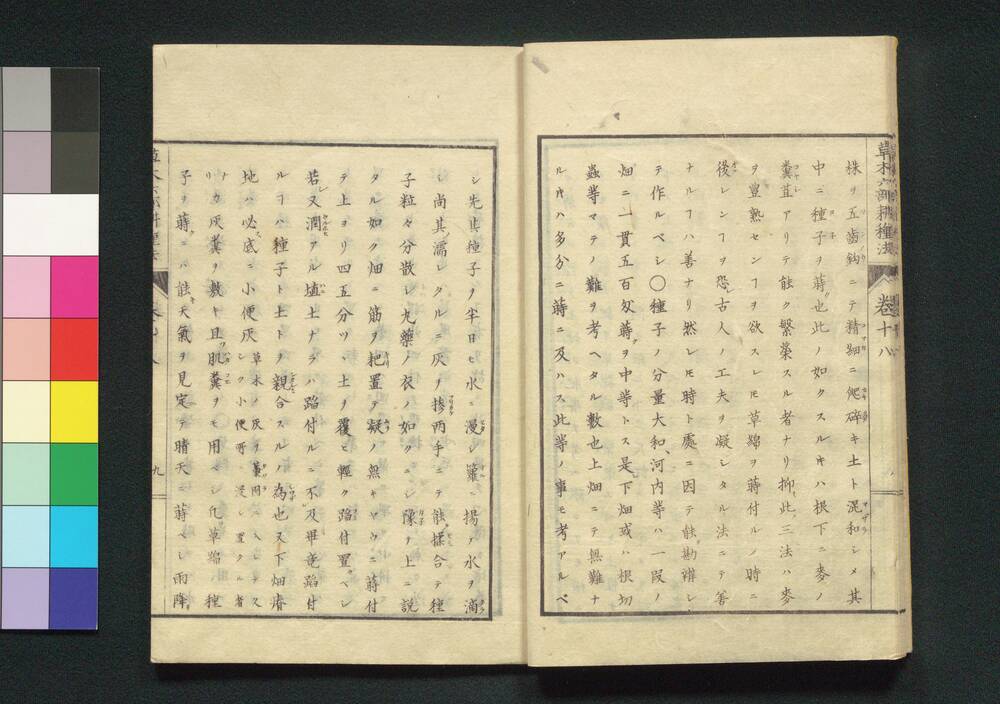 草木六部耕種法 卷十八
株ヲ五齒鈎ニテ精細ニ爬碎キ土ト混和シメ其
中ニ種子ヲ蒔也此ノ如クスルキハ根下ニ麥ノ
糞苴アリテ能ク繁榮スル者ナリ抑此三法ハ麥
ヲ豊熟センヿヲ欲スレ𪜈草綿ヲ蒔付ルノ時ニ
後レンヿヲ恐レ古人ノ工夫ヲ凝シタル法ニテ善
ナルヿハ善ナリ然レ𪜈時ト處ニ因テ能勘辨シ
テ作ルベシ〇種子ノ分量大和、河内等ハ一段ノ
畑ニ一貫五百匁蒔ヲ中等トス是下畑或ハ根切
蟲等マテノ難ヲ考ヘタル數也上畑ニテ無難ナ
ルキハ多分ニ蒔ニ及ハス此等ノ事モ考アルベ
シ先其種子ヲ半日モ水ニ浸シ籮ニ揚ノ水ヲ滴
シ尚其濡レタルニ灰ヲ摻兩手ニテ能揉合テ種
子粒々分散シ丸藥ノ衣ノ如クニシ上ニ説
タル如ク畑ニ筋ヲ把置テ凝ノ無キヤウニ蒔付
テ上ヨリ四五分ツヽ土ヲ覆ヒ輕ク蹈付置ベシ
若又潤アル埴土ナラバ蹈付ルニ不及畢竟蹈付
ルヿハ種子ト土トヲ親合スルノ為也又下畑瘠
地ハ必底ニ小便灰草木ノ灰ヲ
シク小便所ニ浸シ置タル者
ナリカ灰糞ヲ敷キ且肌糞ヲモ用ベシ凡草綿ノ種
子ヲ蒔ニハ能天氣ヲ見定テ晴天ニ蒔ベシ雨降
九